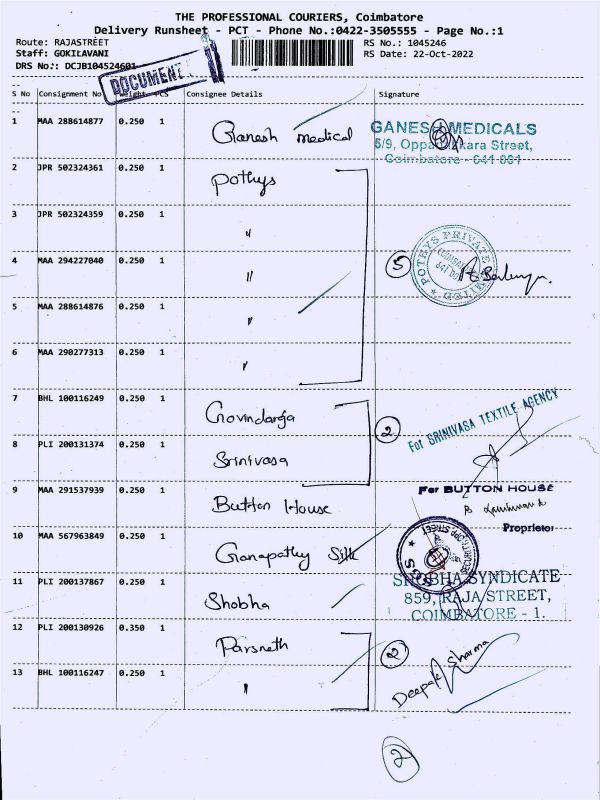 THE PROFESSIONAL COURIERS, Coimbatore
Delivery Runsheet - PCT - Phone No.:0422-3505555 - Page No.:1
Route: RAJASTREET RS No.: 1045246
Staff: GOKILAVANI RS Date: 22-Oct-2022
DRS No.: DCJB104524601
DOCUMENT
S No Consignment No Weight PCS Consignee Details Signature
1 MAA 288614877 0.250 1 Ganesh medical
GANESH MEDICALS
Street,
Coimbatore - 641 001
2 JPR 502324361 0.250 1 Pothys
3 JPR 502324359 0.250 1 "
4 MAA 294227040 0.250 1 " 5
POTHYS PRIVATE LIMITED
5 MAA 288614876 0.250 1 "
6 MAA 290277313 0.250 1 "
7 BHL 100116249 0.250 1 Govindaraja 2
For SRINIVASA TEXTILE AGENCY
8 PLI 200131374 0.250 1 Srinivasa
9 MAA 291537939 0.250 1 Button House
For BUTTON HOUSE
Proprietor
10 MAA 567963849 0.250 1 Ganapathy Silk
11 PLI 200137867 0.250 1 Shobha
SHOBHA SYNDICATE
859, RAJA STREET,
COIMBATORE - 1.
12 PLI 200130926 0.350 1 Parsneth 2
Deepak Sharma
13 BHL 100116247 0.250 1 "
2